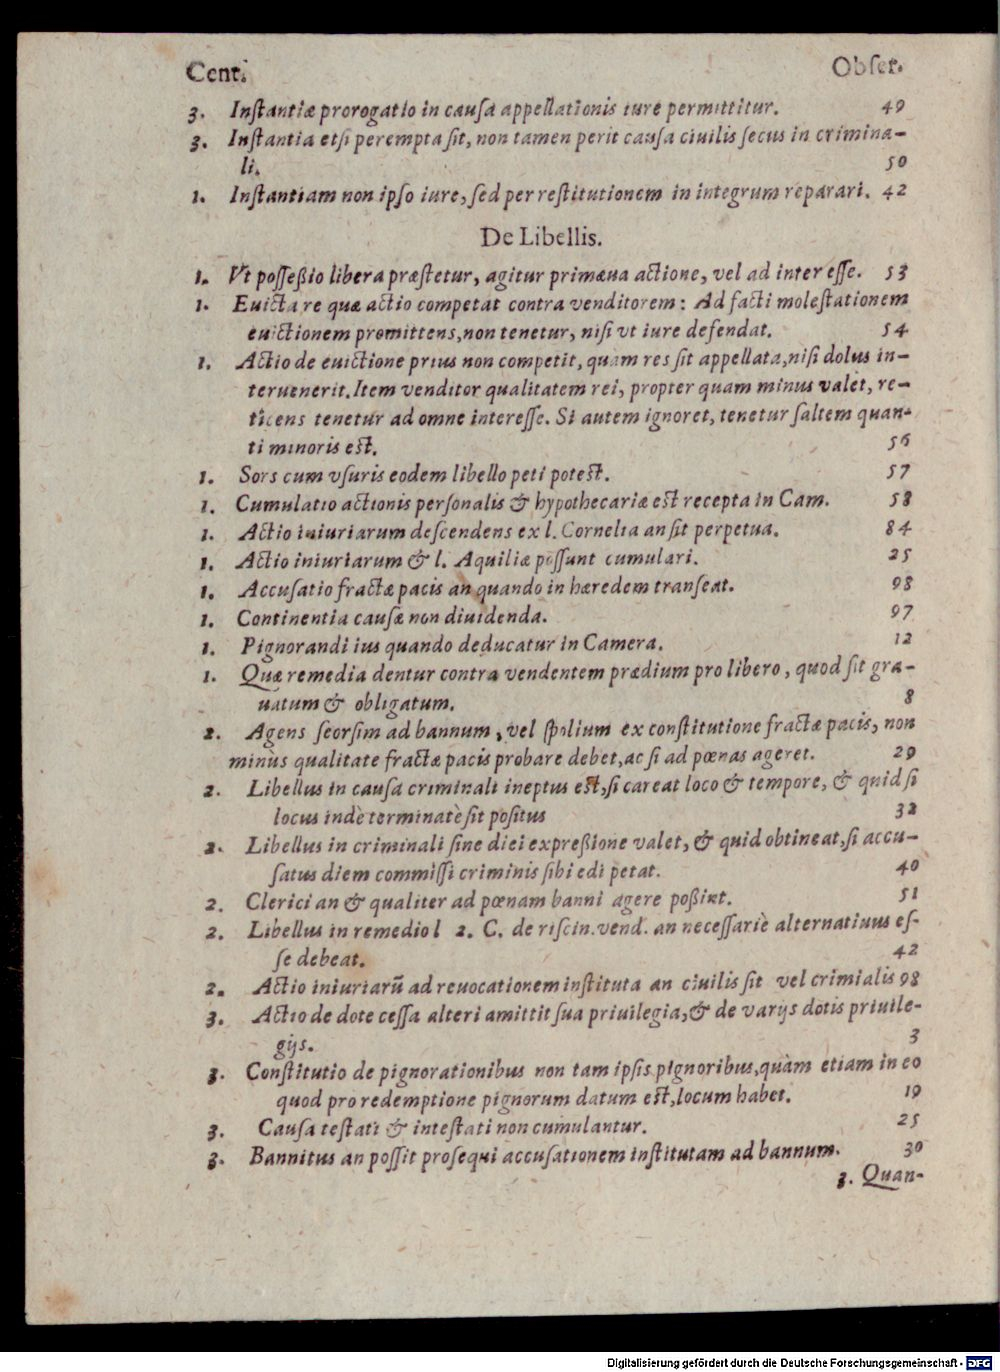 Cent. Obser.
3. Inſtantiæ prorogatio in cauſa appellationis iure permittitur. 49
3. Inſtantia etſi perempta ſit, non tamen perit cauſa ciuilis ſecus in crimina-
li. 50
1. Inſtantiam non ipſo iure, ſed per reſtitutionem in integrum reparari. 42
De Libellis.
1. Vt poſſeßio libera præſtetur, agitur primæua actione, vel ad inter eſſe. 53
1. Euicta re quæ actio competat contra venditorem: Ad facti moleſtationem
euictionem promittens, non tenetur, niſi vt iure defendat. 54
1. Actio de euictione prius non competit, quam res ſit appellata, niſi dolus in-
teruenerit. Item venditor qualitatem rei, propter quam minus valet, re-
ticens tenetur ad omne intereſſe. Si autem ignoret, tenetur ſaltem quan-
ti minoris eſt. 56
1. Sors cum vſuris eodem libello peti poteſt. 57
1. Cumulatio actionis perſonalis & hypothecariæ eſt recepta in Cam. 58
1. Actio iniuriarum deſcendens ex l. Cornelia an ſit perpetua. 84
1. Actio iniuriarum & l. Aquiliæ poſſunt cumulari. 25
1. Accuſatio fractæ pacis an quando in hæredem tranſeat. 98
1. Continentia cauſæ non diuidenda. 97
1. Pignorandi ius quando deducatur in Camera. 12
1. Quæ remedia dentur contra vendentem prædium pro libero, quod ſit gra-
uatum & obligatum. 8
2. Agens ſeorſim ad bannum, vel ſpolium ex conſtitutione fractæ pacis, non
minùs qualitate fractæ pacis probare debet, ac ſi ad pœnas ageret. 29
2. Libellus in cauſa criminali ineptus eſt, ſi careat loco & tempore, & quid ſi
locus indèterminatè ſit poſitus 32
2. Libellus in criminali ſine diei expreßione valet, & quid obtineat, ſi accu-
ſatus diem commiſſi criminis ſibi edi petat. 40
2. Clerici an & qualiter ad pœnam banni agere poßint. 51
2. Libellus in remedio l 2. C. de riſcin. vend. an neceſſariè alternatiuus eſ-
ſe debeat. 42
2. Actio iniuriarũ ad reuocationem inſtituta an ciuilis ſit vel crimialis 98
3. Actio de dote ceſſa alteri amittit ſua priuilegia, & de varijs dotis priuile-
gijs. 3
3. Conſtitutio de pignorationibus non tam ipſis pignoribus, quàm etiam in eo
quod pro redemptione pignorum datum eſt, locum habet. 19
3. Cauſa teſtati & inteſtati non cumulantur. 25
3. Bannitus an poſſit proſequi accuſationem inſtitutam ad bannum. 30
3. Quan-
Digitalisierung gefördert durch die Deutsche Forschungsgemeinschaft - DFG